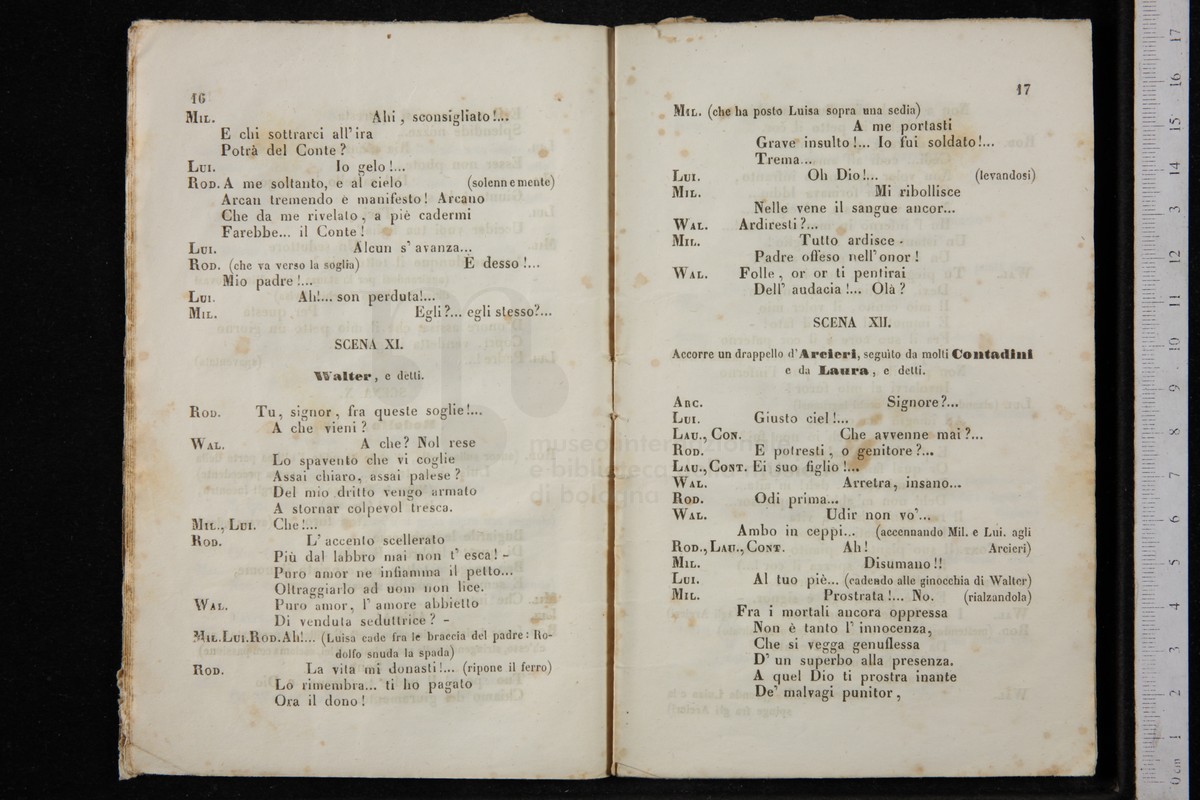 16
MIL. Ahi, sconsigliato!...
E chi sottrarci all' ira
Potrà del Conte?
LUI. Io gelo!...
ROD. A me soltanto, e al cielo (solennemente)
Arcan tremendo e manifesto! Arcano
Che da me rivelato, a piè cadermi
Farebbe... il Conte!
LUI. Alcun s' avanza...
ROD. (che va verso la soglia) È desso!...
Mio padre!...
LUI. Ah!... son perduta!...
MIL. Egli?... egli stesso?...
SCENA XI.
Walter, e detti.
ROD. Tu, signor, fra queste soglie!...
A che vieni?
WAL. A che? Nol rese
Lo spavento che vi coglie
Assai chiaro, assai palese?
Del mio dritto vengo armato
A stornar colpevol tresca.
MIL., LUI. Che!...
ROD. L' accento scellerato
Più dal labbro mai non t' esca! -
Puro amor ne infiamma il petto...
Oltraggiarlo ad uom non lice.
WAL. Puro amor, l' amore abbietto
Di venduta seduttrice? -
MIL.LUI.ROD. Ah!... (Luisa cade fra le braccia del padre: Ro-
dolfo snuda la spada)
ROD. La vita mi donasti!... (ripone il ferro)
Lo rimembra... ti ho pagato
Ora il dono!
17
MIL. (che ha posto Luisa sopra una sedia)
A me portasti
Grave insulto!... Io fui soldato!...
Trema...
LUI. Oh Dio!... (levandosi)
MIL. Mi ribollisce
Nelle vene il sangue ancor...
WAL. Ardiresti?...
MIL. Tutto ardisce -
Padre offeso nell' onor!
WAL. Folle, or or ti pentirai
Dell' audacia!... Olà?
SCENA XII.
Accorre un drappello d'Arcieri, seguito da molti Contadini
e da Laura, e detti.
ARC. Signore?...
LUI. Giusto ciel!...
LAU., CON. Che avvenne mai?...
ROD. E potresti, o genitore?...
LAU., CONT. Ei suo figlio!...
WAL. Arretra, insano...
ROD. Odi prima...
WAL. Udir non vo'...
Ambo in ceppi... (accennando Mil. e Lui. agli
ROD., LAU., CONT. Ah! Arcieri)
MIL. Disumano!!
LUI. Al tuo piè... (cadendo alle ginocchia di Walter)
MIL. Prostrata!... No. (rialzandola)
Fra i mortali ancora oppressa
Non è tanto l' innocenza,
Che si vegga genuflessa
D' un superbo alla presenza.
A quel Dio ti prostra inante
De' malvagi punitor,
museo internazionale
e biblioteca
di bologna
0 cm 1 2 3 4 5 6 7 8 9 10 11 12 13 14 15 16 17